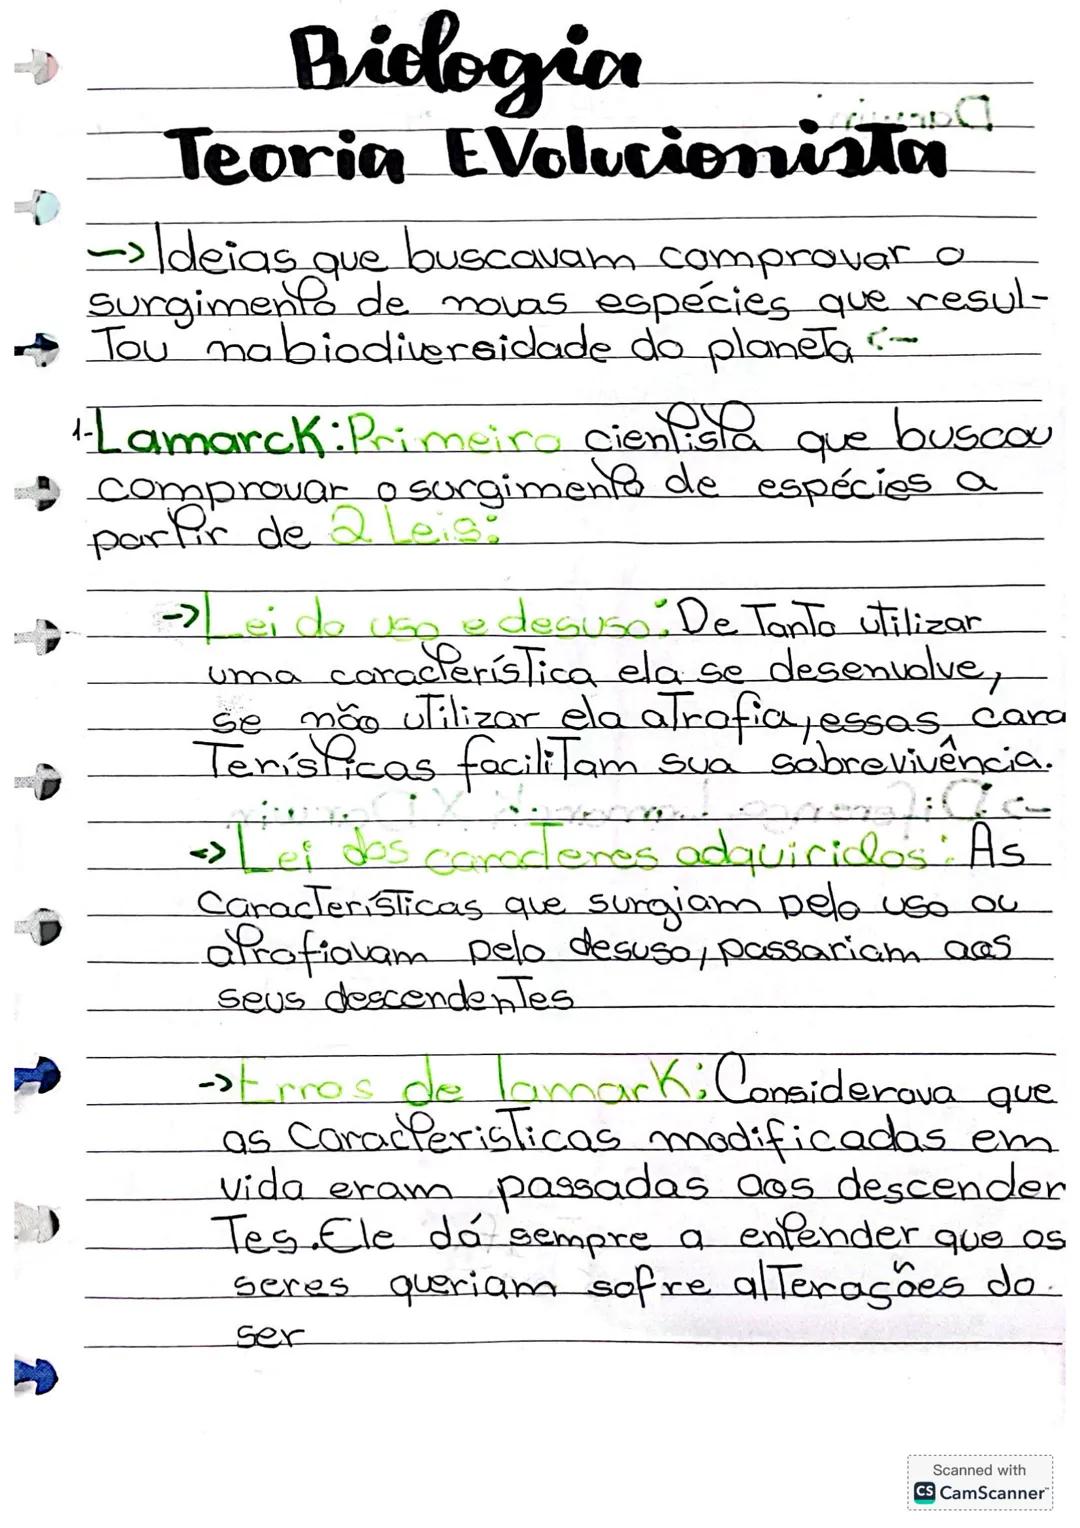 Biologia
Teoria EVolucionista
-> Ideias que buscavam comprovar o
surgimento de novas espécies que resul-
Tou na biodiversidade do planeta <-
1- LamarcK: Primeiro cientista que buscou
comprovar o surgimento de espécies a
partir de 2 Leis:
-> Lei do uso e desuso: De Tanto utilizar
uma característica ela se desenvolve,
se não utilizar ela atrofia, essas cara
Terísticas facilitam sua sobrevivência.
-> Lei dos caracteres adquiridos: As
Características que surgiam pelo uso ou
atrofiavam pelo desuso, passariam aos
seus descendentes
-> Erros de lamarK: Considerava que
as Caracteristicas modificadas em
vida eram passadas aos descenden
Tes. Ele dá sempre a entender que os
seres queriam sofre alterações do
ser
Darwin
-> Diferença Lamarck X Darwin
Scanned with
CS CamScanner